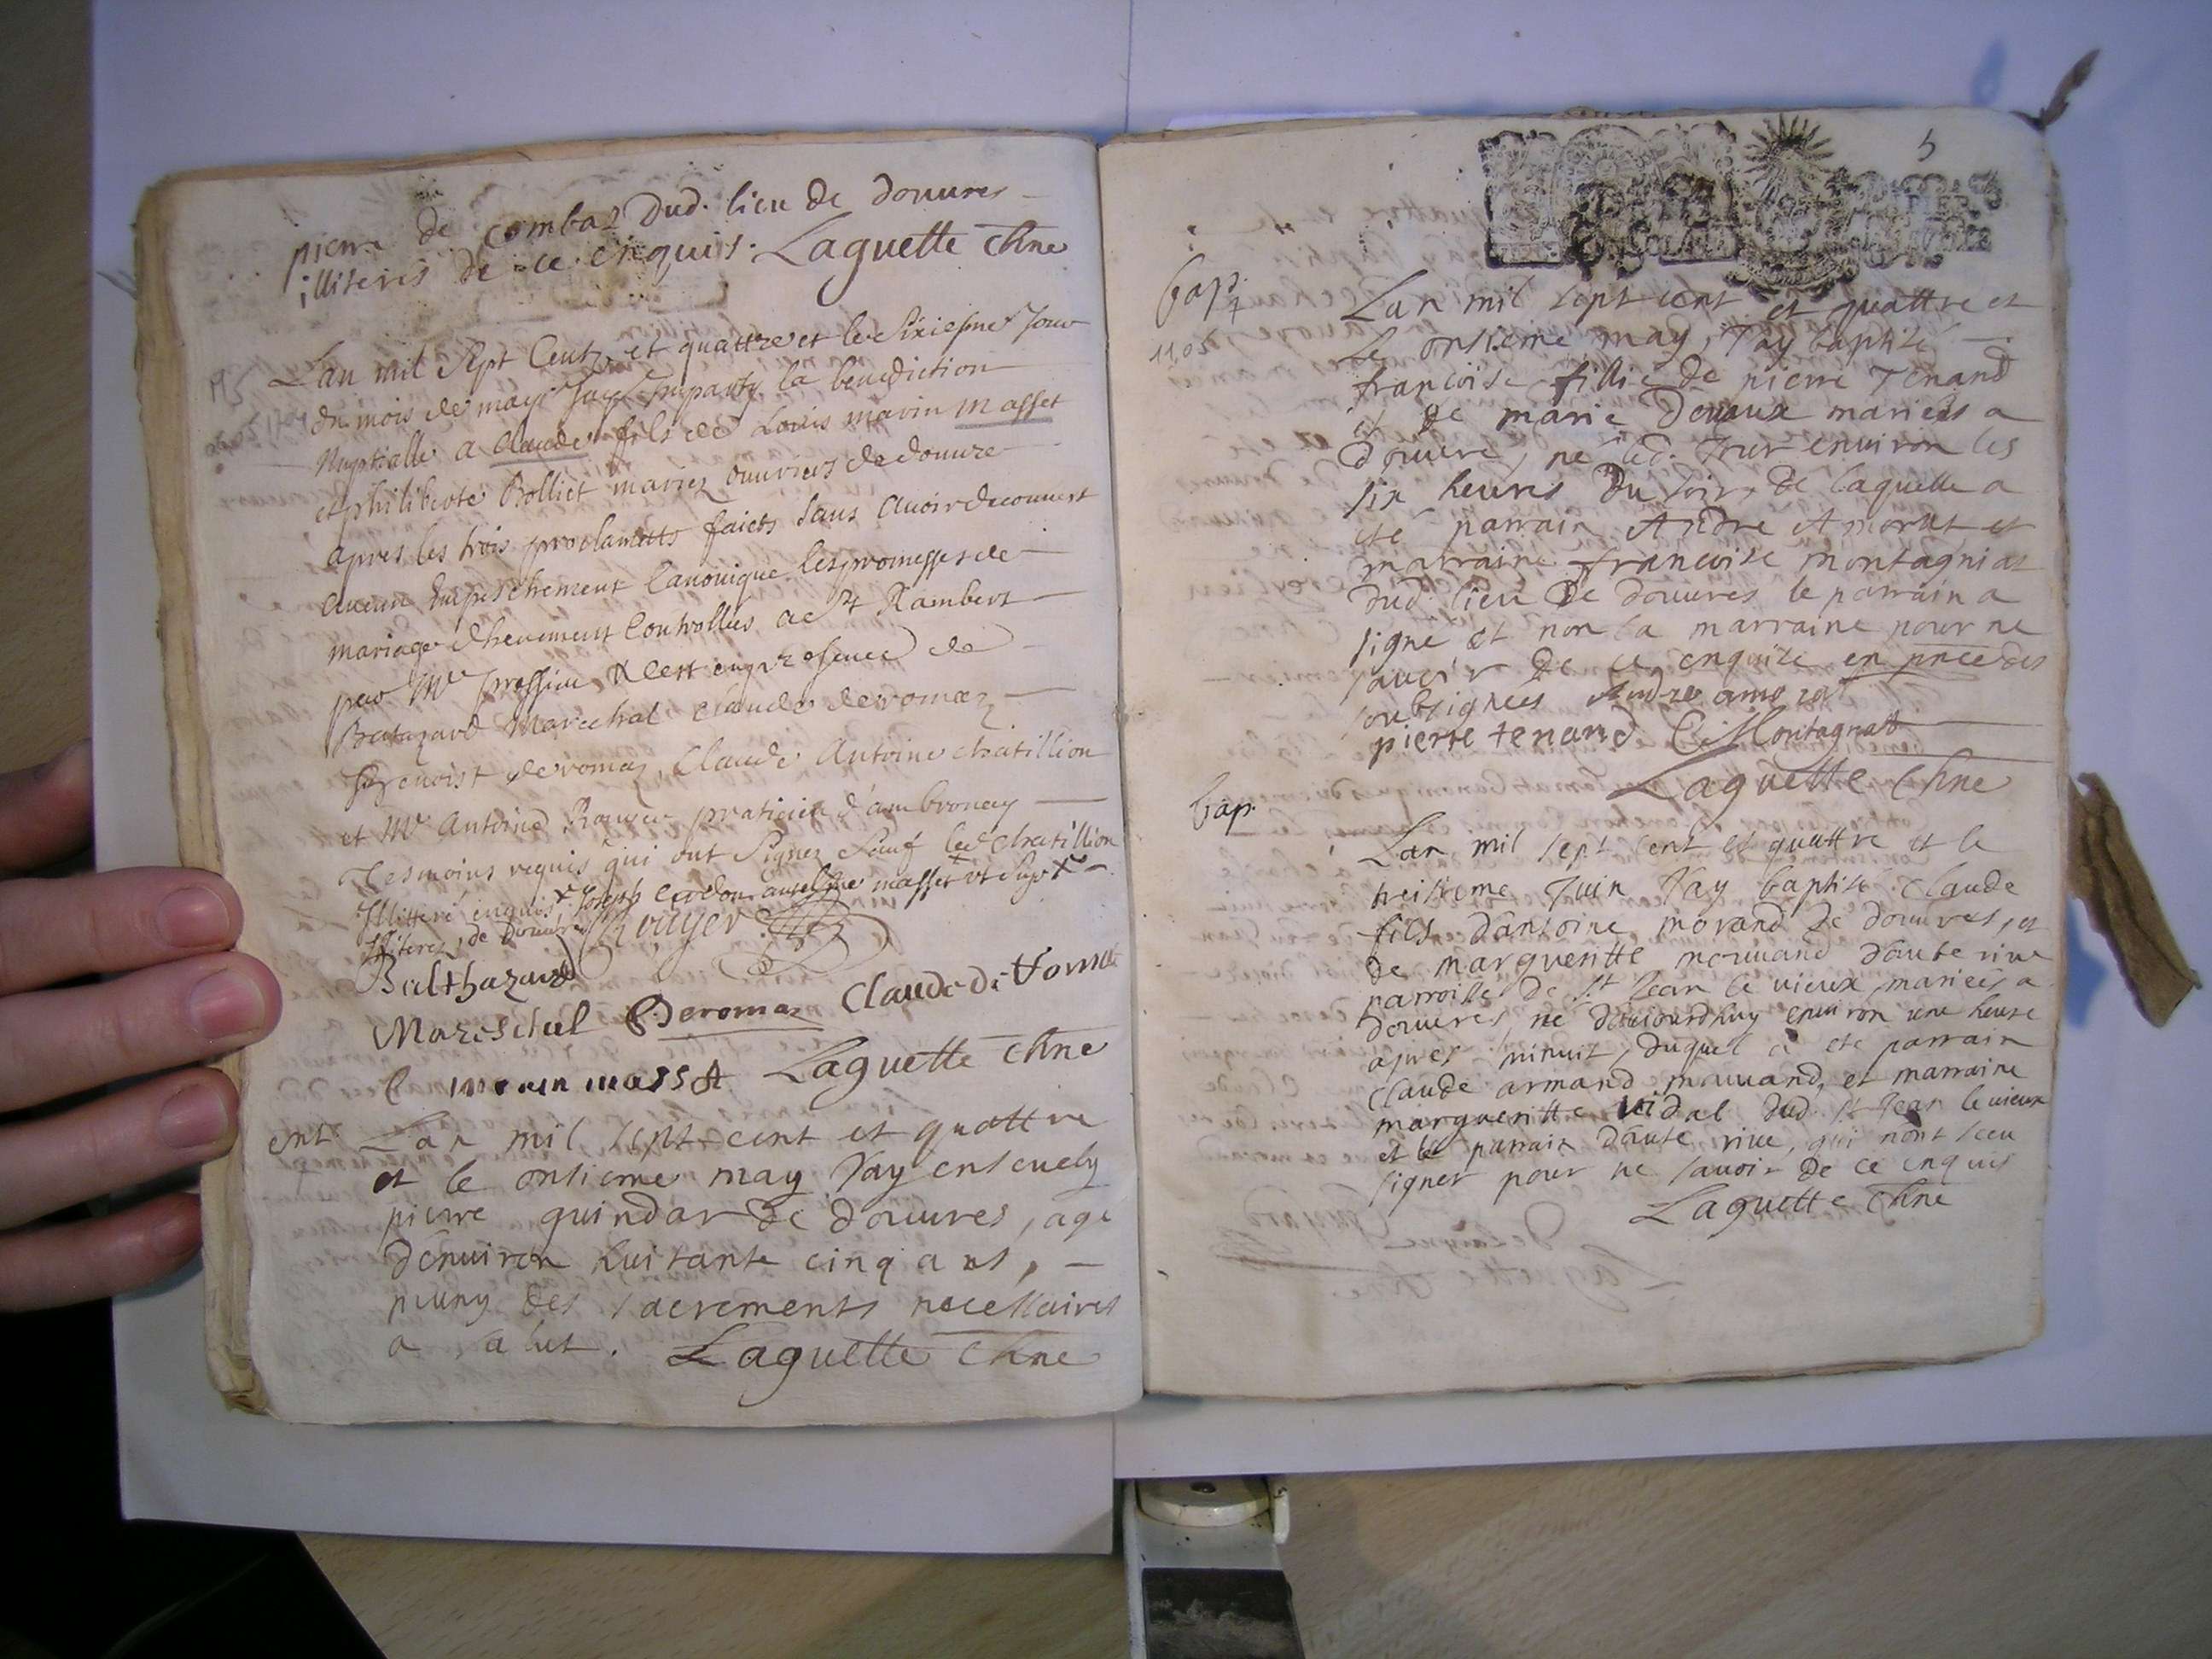 pierre de combaz dud. lieu de douures
illiteris de ce enquis. Laguette Chne
Lan mil Sept Centz et quattre et le Sixiesme Jour
du mois de may Jay Imparty la benediction
Nuptialle a Claude fils de Louis marin masset
et philiberte Bolliet mariez ouuriers de douure
apres les trois proclamats faicts sans auoir decouuert
aucun Empeschement Canonique les promesses de
mariage dheuement Controllées a St Rambert
par Mr et cest en presence de
Batazard Marechal Claude deromaz
benoist deromaz, Claude Antoine chatillion
et Mr Antoine Rouyer praticien d'ambronay
Tesmoins requis qui ont Signez Sauf led Chatillion
Illitteré enquis Joseph masset
Illiteres, de Douure Rouyer
Balthazard
Mareschal B Deromaz Claude di Roma
C marin masst Laguette Chne
ent Lan mil sept cent et quattre
et le onsieme may Jay enseuely
pierre guindar de douures, agé
denuiron huitante cinq ans,
muny des sacrements necessaires
a salut. Laguette Chne
5
bap.
11,05
Lan mil sept cent et quattre et
le onsieme may, Jay baptisé
francoise fillie de pierre Tenand
et de marie Deuaux mariées a
douure, ne led. Jour enuiron les
six heures du soir, de laquelle a
ete parrain Andre Amorat et
marraine francoise montagniat
dud. lieu de douures le parrain a
signé et non la marraine pour ne
sauoir de ce enquise en pnce des
soubsignees Andre amorat
pierre tenand C Montagnat
Laguette Chne
bap.
Lan mil sept cent et quattre et le
treisieme Juin Jay baptisé Claude
fils dantoine morand de douures, et
de margueritte mouuand dauterive
parroisse de St Jean le vieux, mariées a
douures, né daujourdhuy enuiron une heure
apres minuit, duquel a eté parrain
Claude armand mouuand, et marraine
margueritte vidal dud. St Jean le vieux
et le parrain dauterive, qui nont sceu
signer pour ne sauoir de ce enquis
Laguette Chne